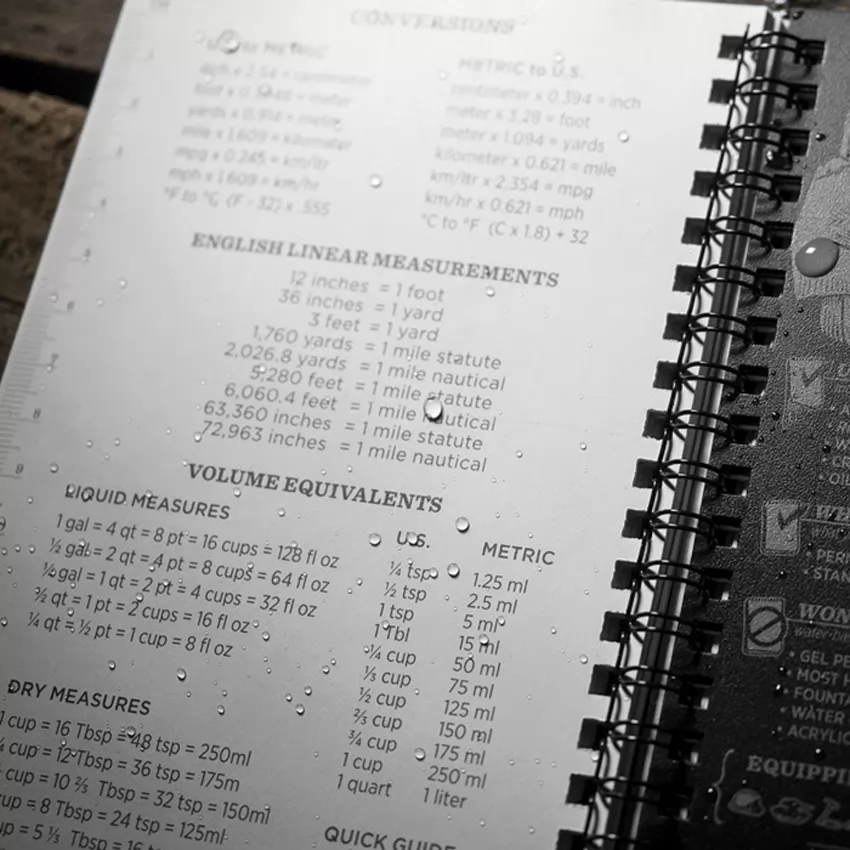 CONVERSIONS
METRIC
inch x 2.54 = centimeter
foot x = meter
yards x 0.914 = meter
mile x 1.609 = kilometer
mpg x 0.245 = km/ltr
mph x 1.609 = km/hr
°F to °C (F - 32) x .555
METRIC to U.S.
centimeter x 0.394 = inch
meter x 3.28 = foot
meter x 1.094 = yards
kilometer x 0.621 = mile
km/ltr x 2.354 = mpg
km/hr x 0.621 = mph
°C to °F (C x 1.8) + 32
ENGLISH LINEAR MEASUREMENTS
12 inches = 1 foot
36 inches = 1 yard
3 feet = 1 yard
1,760 yards = 1 mile statute
2,026.8 yards = 1 mile nautical
5,280 feet = 1 mile statute
6,060.4 feet = 1 mile nautical
63,360 inches = 1 mile statute
72,963 inches = 1 mile nautical
VOLUME EQUIVALENTS
LIQUID MEASURES
1 gal = 4 qt = 8 pt = 16 cups = 128 fl oz
½ gal = 2 qt = 4 pt = 8 cups = 64 fl oz
gal = 1 qt = 2 pt = 4 cups = 32 fl oz
qt = 1 pt = 2 cups = 16 fl oz
¼ qt = ½ pt = 1 cup = 8 fl oz
U.S. METRIC
¼ tsp 1.25 ml
½ tsp 2.5 ml
1 tsp 5 ml
1 Tbl 15 ml
¼ cup 50 ml
⅓ cup 75 ml
½ cup 125 ml
⅔ cup 150 ml
¾ cup 175 ml
1 cup 250 ml
1 quart 1 liter
DRY MEASURES
1 cup = 16 Tbsp = 48 tsp = 250ml
cup = 12 Tbsp = 36 tsp = 175m
cup = 10 ⅔ Tbsp = 32 tsp = 150ml
cup = 8 Tbsp = 24 tsp = 125ml
= 5 ⅓ Tbsp = 16
QUICK GUIDE
• GEL
• MOST
• WATER
EQUIPPI